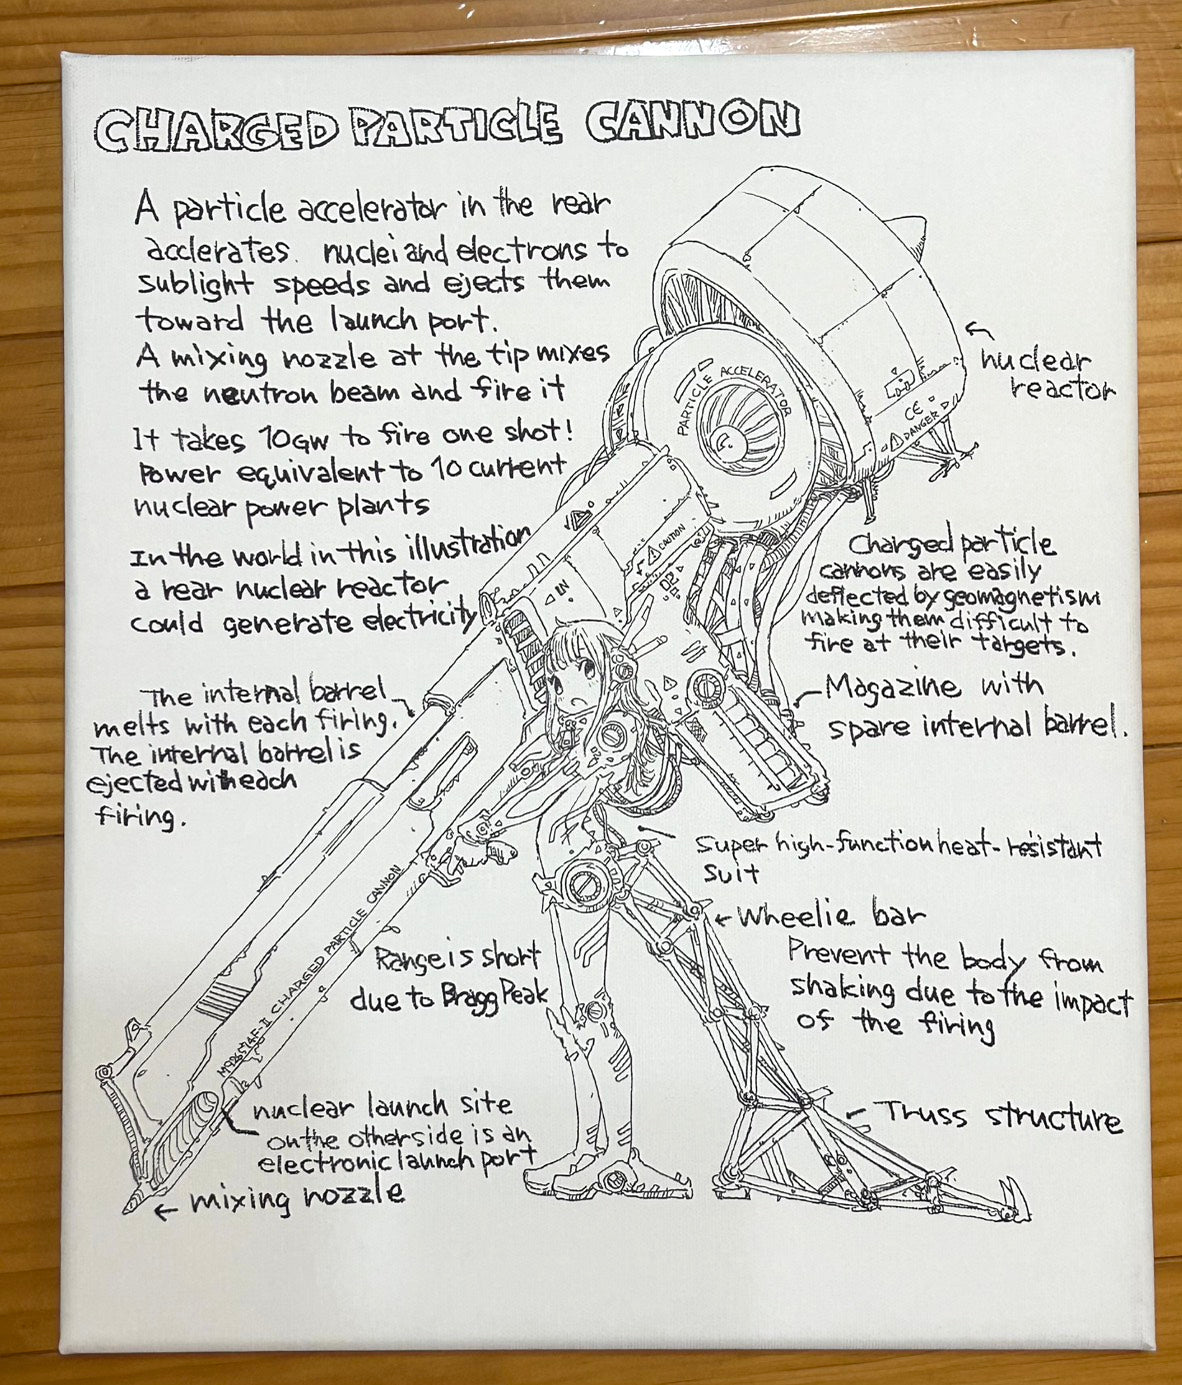 CHARGED PARTICLE CANNON
A particle accelerator in the rear
acclerates. nuclei and electrons to
sublight speeds and ejects them
toward the launch port.
A mixing nozzle at the tip mixes
the neutron beam and fire it
It takes 10GW to fire one shot!
Power equivalent to 10 current
nuclear power plants
In the world in this illustration
a rear nuclear reactor
could generate electricity
The internal barrel
melts with each firing.
The internal barrel is
ejected with each
firing.
PARTICLE ACCELERATOR
CE
DANGER
nuclear
reactor
CAUTION
IN
02
Charged particle
cannons are easily
deflected by geomagnetism
making them difficult to
fire at their targets.
Magazine with
spare internal barrel.
Super high-function heat-resistant
suit
Wheelie bar
Prevent the body from
shaking due to the impact
of the firing
Range is short
due to Bragg Peak
CHARGED PARTICLE CANNON
Truss structure
nuclear launch site
on the other side is an
electronic launch port
mixing nozzle